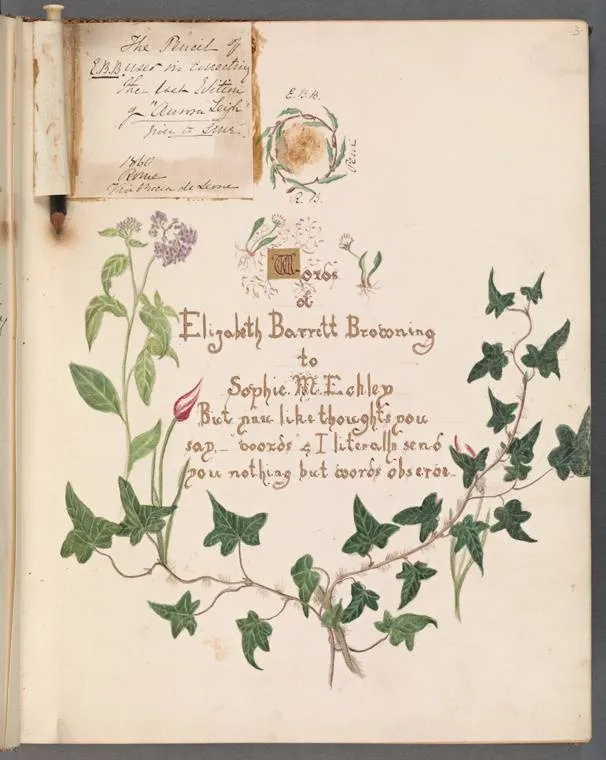 3
The Pencil of
E.B.B. used in correcting
the last Edition
of "Aurora Leigh"
1860
Rome
E.B.B.
R. B.
Words
of
Elizabeth Barrett Browning
to
Sophie M. Eckley
But you like thoughts you
say. – words & I literally send
you nothing but words observe –